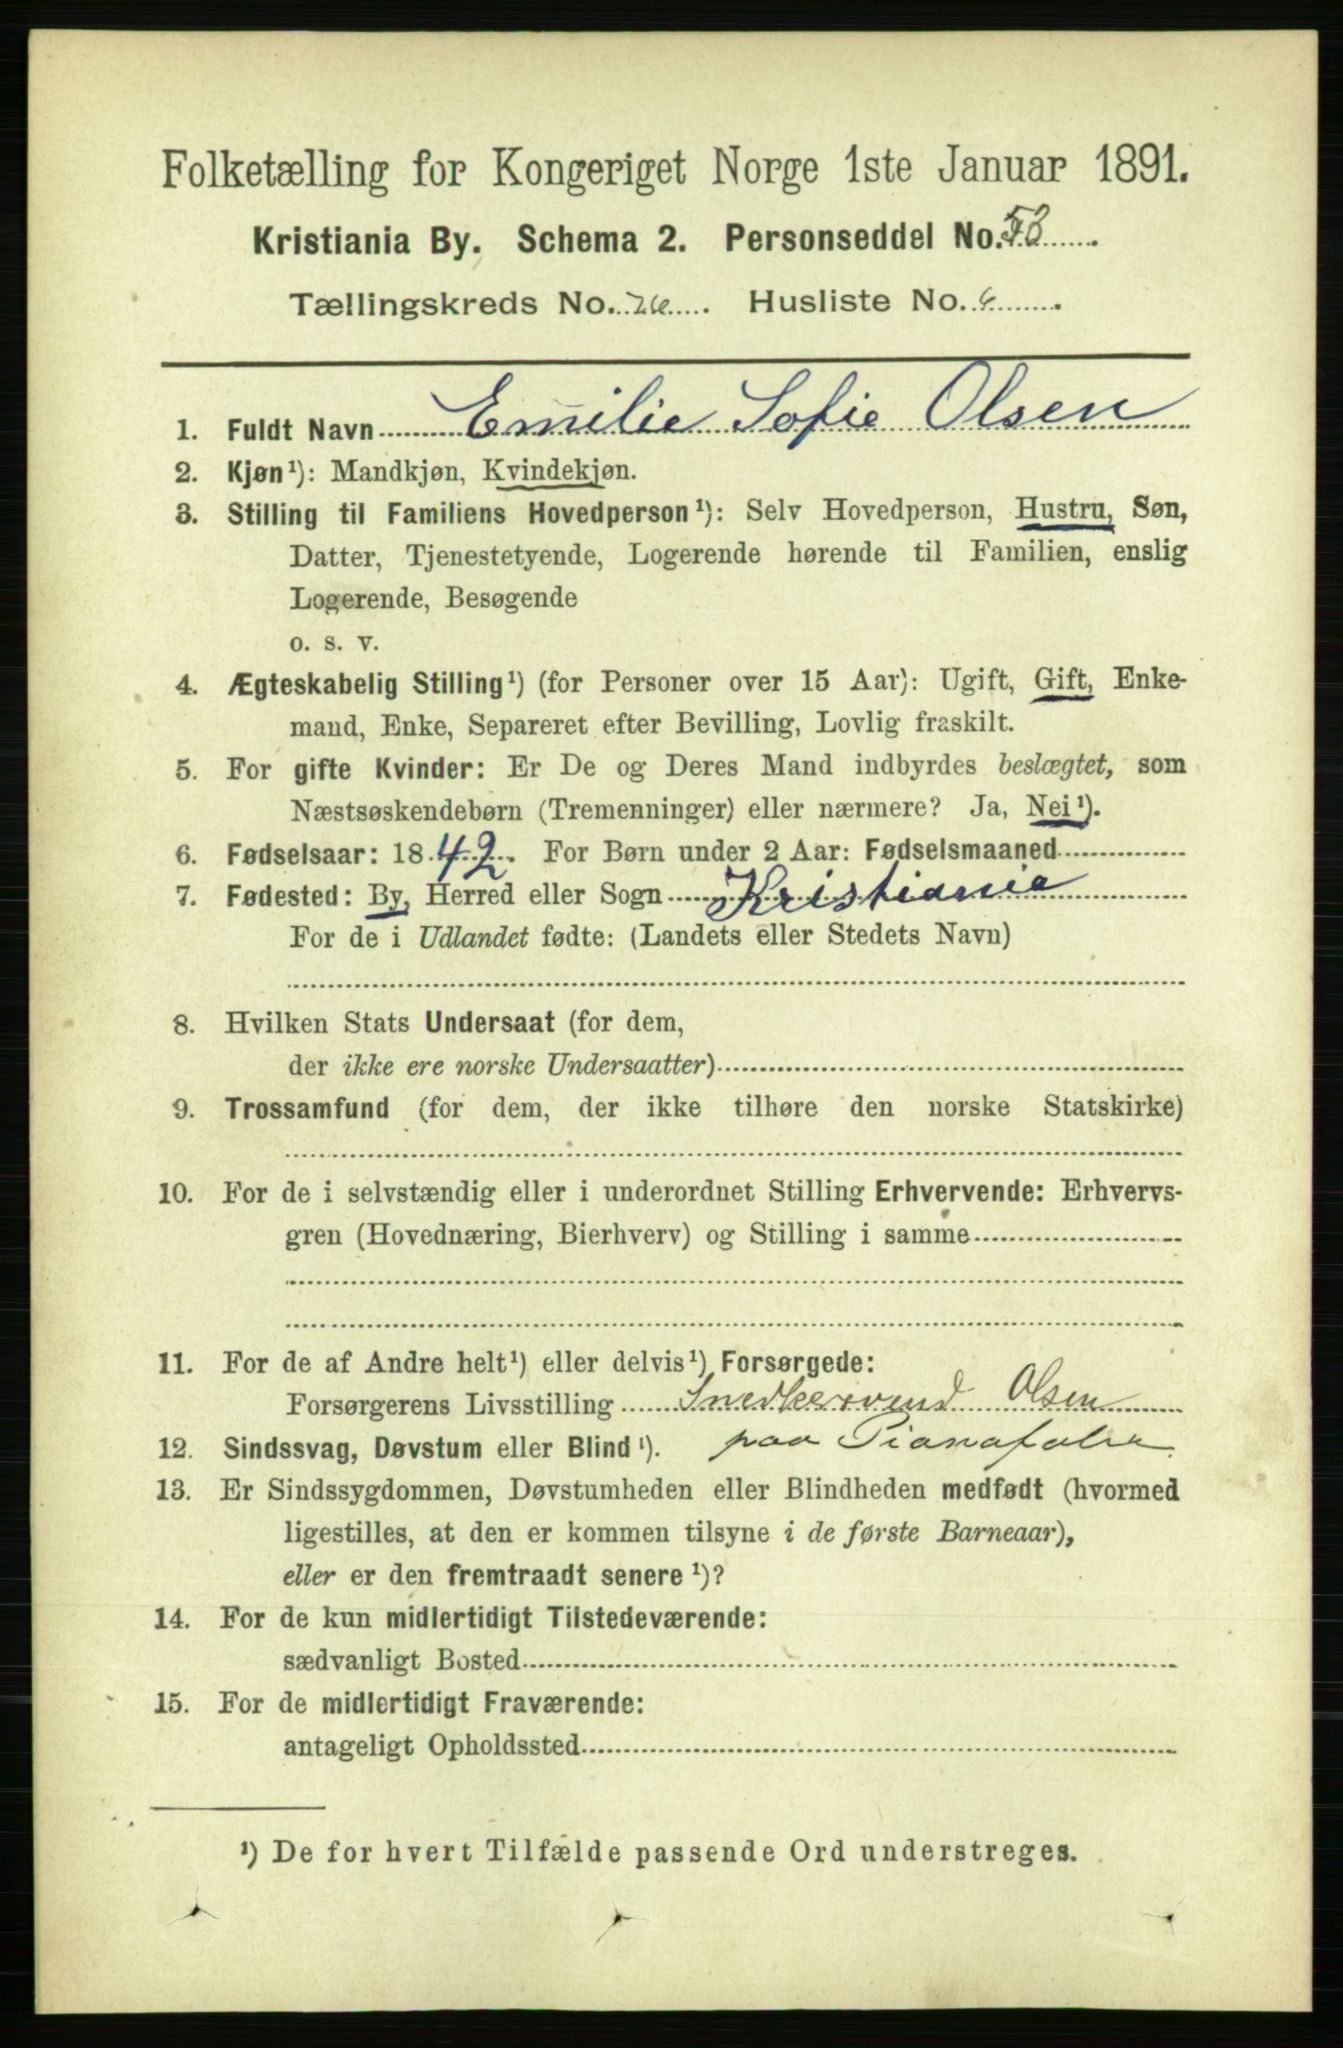 Folketælling for Kongeriget Norge 1ste Januar 1891.
Kristiania By. Schema 2. Personseddel No. 58
Tællingskreds No. 26. Husliste No. 6.
1. Fuldt Navn Emilie Sofie Olsen
2. Kjøn¹): Mandkjøn, Kvindekjøn.
3. Stilling til Familiens Hovedperson¹): Selv Hovedperson, Hustru, Søn,
Datter, Tjenestetyende, Logerende hørende til Familien, enslig
Logerende, Besøgende
o. s. v.
4. Ægteskabelig Stilling¹) (for Personer over 15 Aar): Ugift, Gift, Enke-
mand, Enke, Separeret efter Bevilling, Lovlig fraskilt.
5. For gifte Kvinder: Er De og Deres Mand indbyrdes beslægtet, som
Næstsøskendebørn (Tremenninger) eller nærmere? Ja, Nei¹).
6. Fødselsaar: 1842. For Børn under 2 Aar: Fødselsmaaned
7. Fødested: By, Herred eller Sogn Kristiania
For de i Udlandet fødte: (Landets eller Stedets Navn)
8. Hvilken Stats Undersaat (for dem,
der ikke ere norske Undersaatter)
9. Trossamfund (for dem, der ikke tilhøre den norske Statskirke)
10. For de i selvstændig eller i underordnet Stilling Erhvervende: Erhvervs-
gren (Hovednæring, Bierhverv) og Stilling i samme
11. For de af Andre helt¹) eller delvis¹) Forsørgede:
Forsørgerens Livsstilling Snedkersvend Olsen
12. Sindssvag, Døvstum eller Blind¹). paa Pianofabr.
13. Er Sindssygdommen, Døvstumheden eller Blindheden medfødt (hvormed
ligestilles, at den er kommen tilsyne i de første Barneaar),
eller er den fremtraadt senere¹)?
14. For de kun midlertidigt Tilstedeværende:
sædvanligt Bosted
15. For de midlertidigt Fraværende:
antageligt Opholdssted
¹) De for hvert Tilfælde passende Ord understreges.